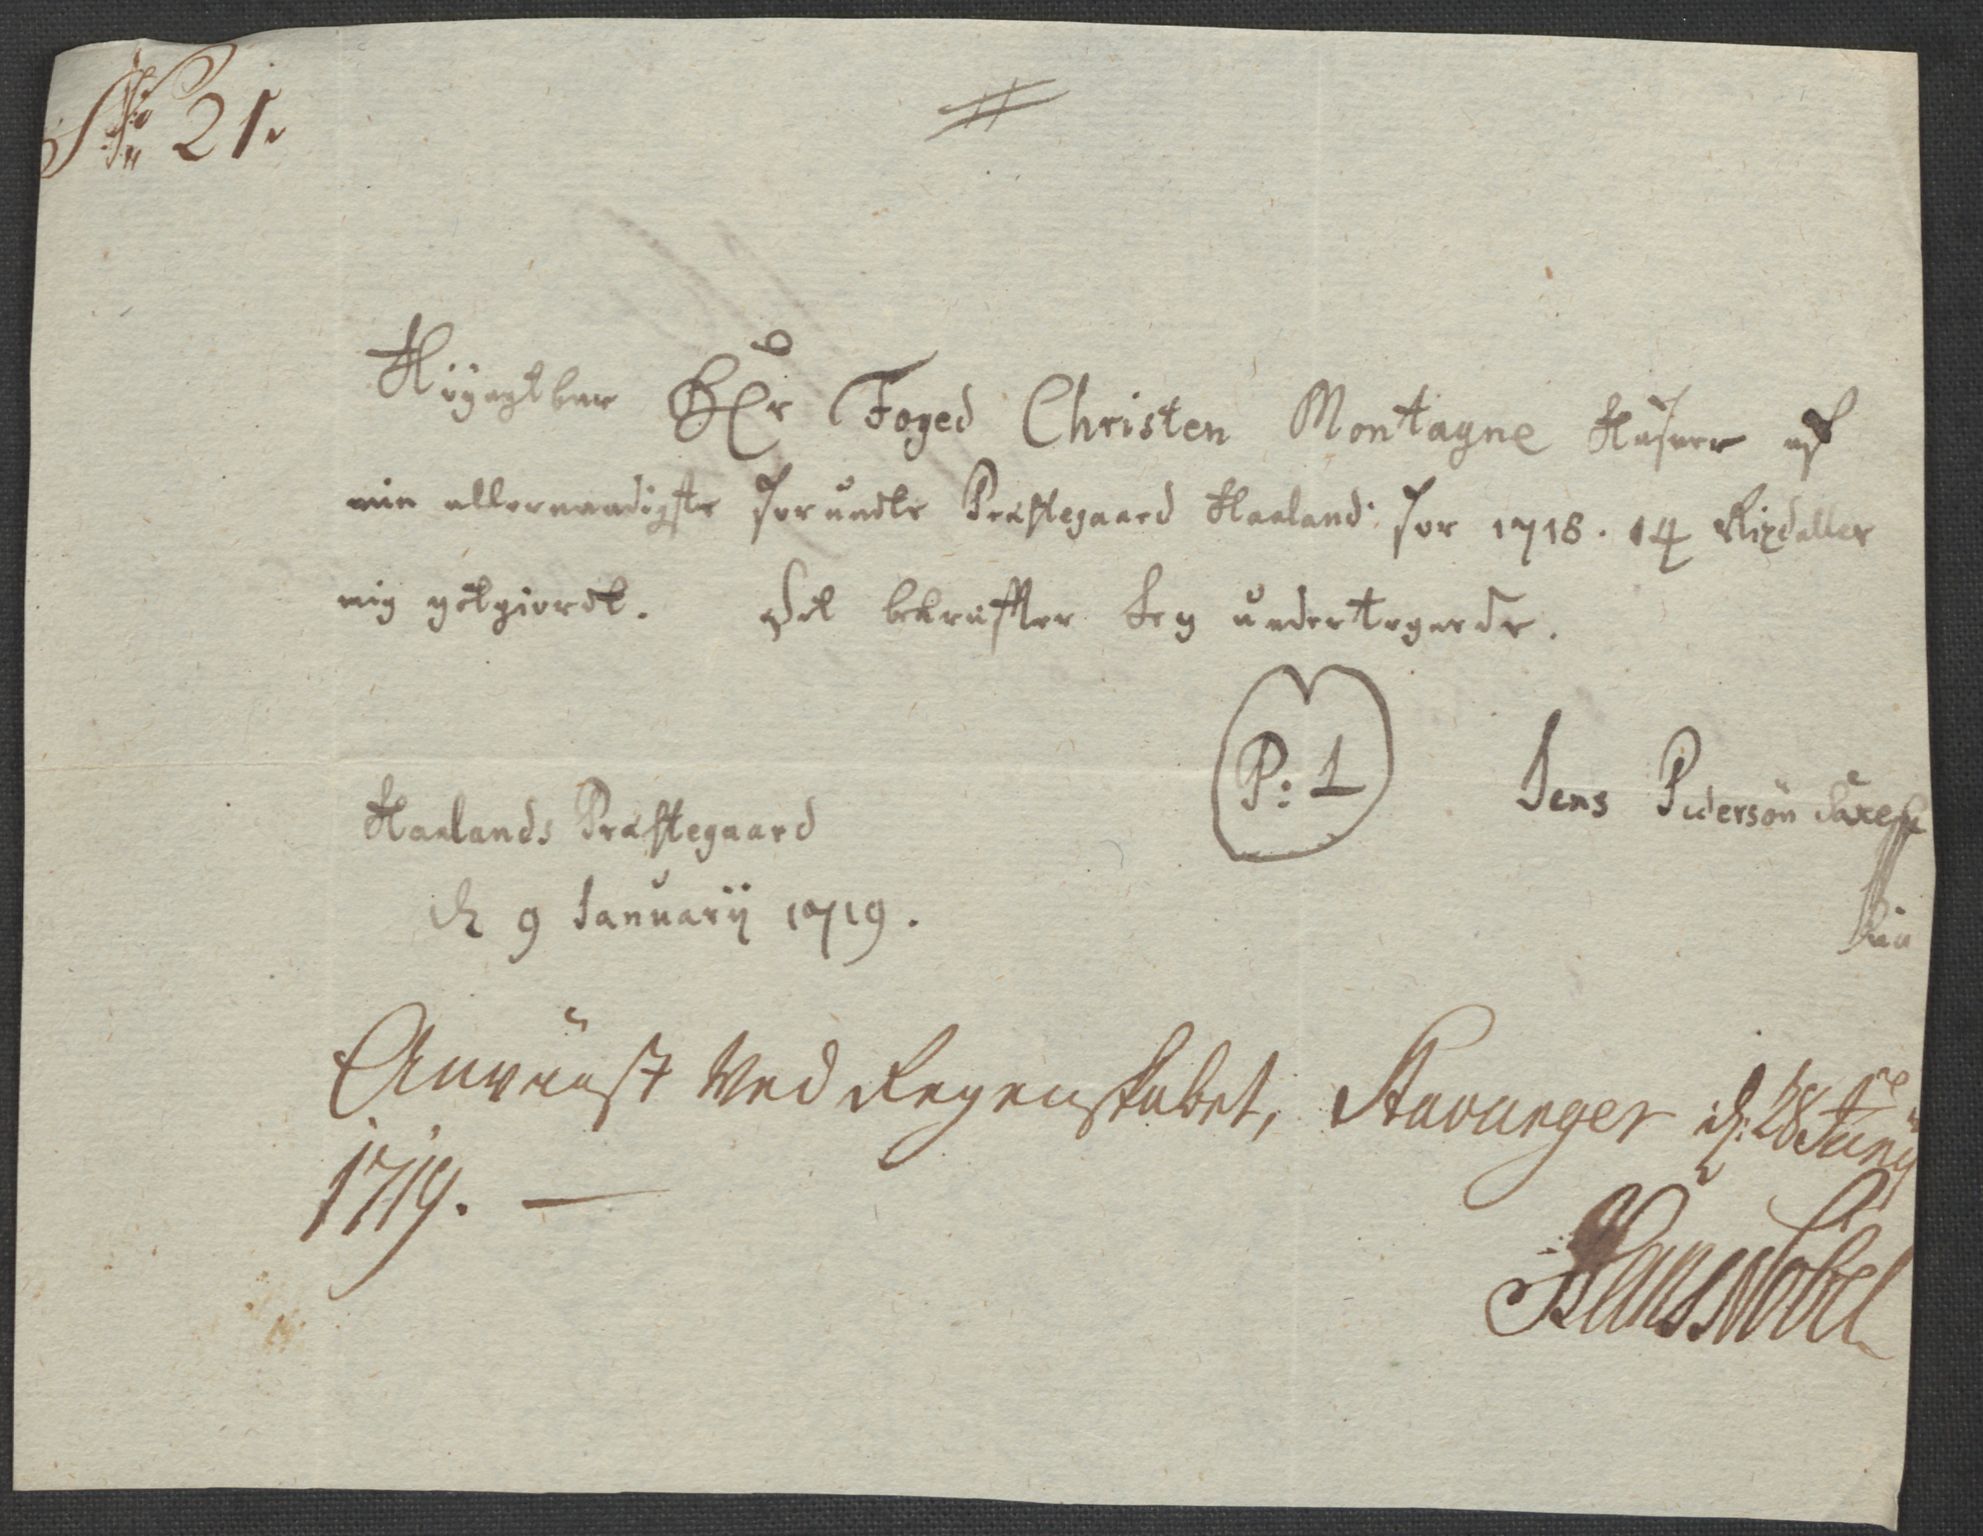 No 21.
Höyagtbar Hr Foged Christen Montagne Hafuer af
min allernaadigste forundte Præstegaard Haaland for 1718. 14 Rixdaller
mig gotgiordt. Det bekræfter Jeg undertegnede.
P: 1
Jens Pedersön
Haalands Præstegaard
d 9 Januarij 1719.
Anviist Ved Regenskabet, Stavanger d: 28 Junij
1719. —
Hans Nobel